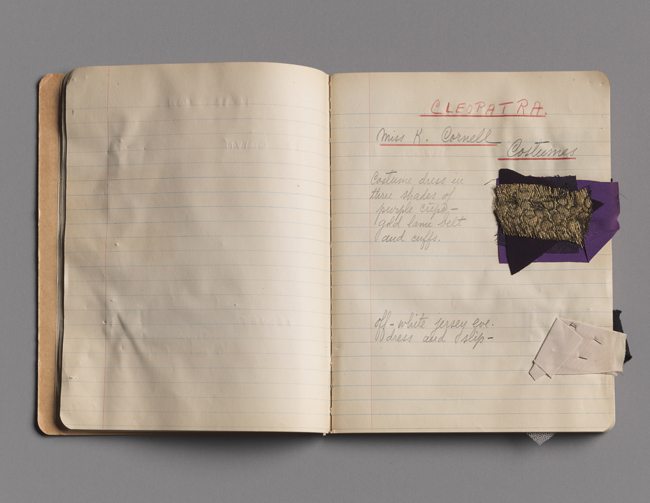 CLEOPATRA.
Miss K. Cornell
Costumes
Costume dress in
three shades of
purple crêpe -
gold lamé belt
and cuffs.
off-white jersey eve.
dress and slip -